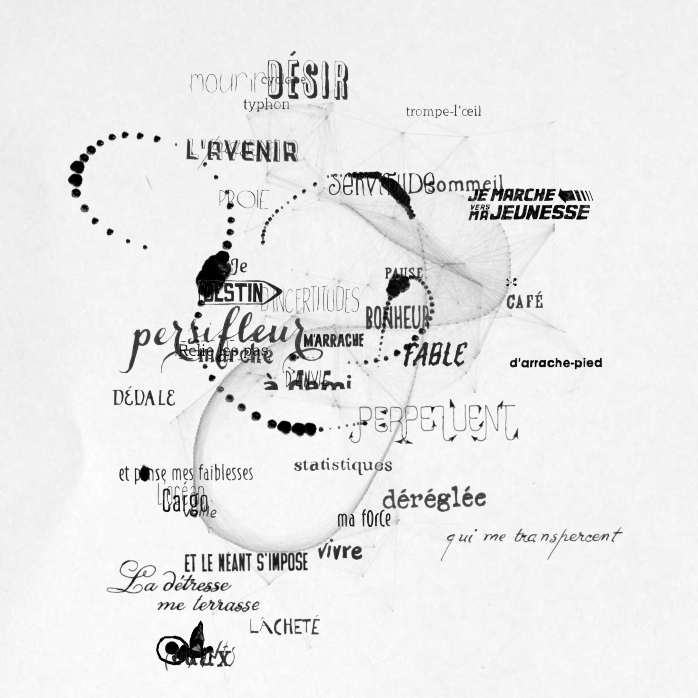 mourir
cyclone
DÉSIR
typhon
trompe-l'œil
L'AVENIR
SERVITUDE
sommeil
JE MARCHE
VERS
MA JEUNESSE
PROIE
Je
PAUSE
DESTIN
D'INCERTITUDES
CAFÉ
BONHEUR
persifleur
M'ARRACHE
marche
FABLE
d'arrache-pied
D'ENVIE
à demi
DÉDALE
PERPETUENT
statistiques
et panse mes faiblesses
L'océan
Cargo
déréglée
ma force
qui me transpercent
vivre
ET LE NÉANT S'IMPOSE
La détresse
me terrasse
LÂCHETÉ